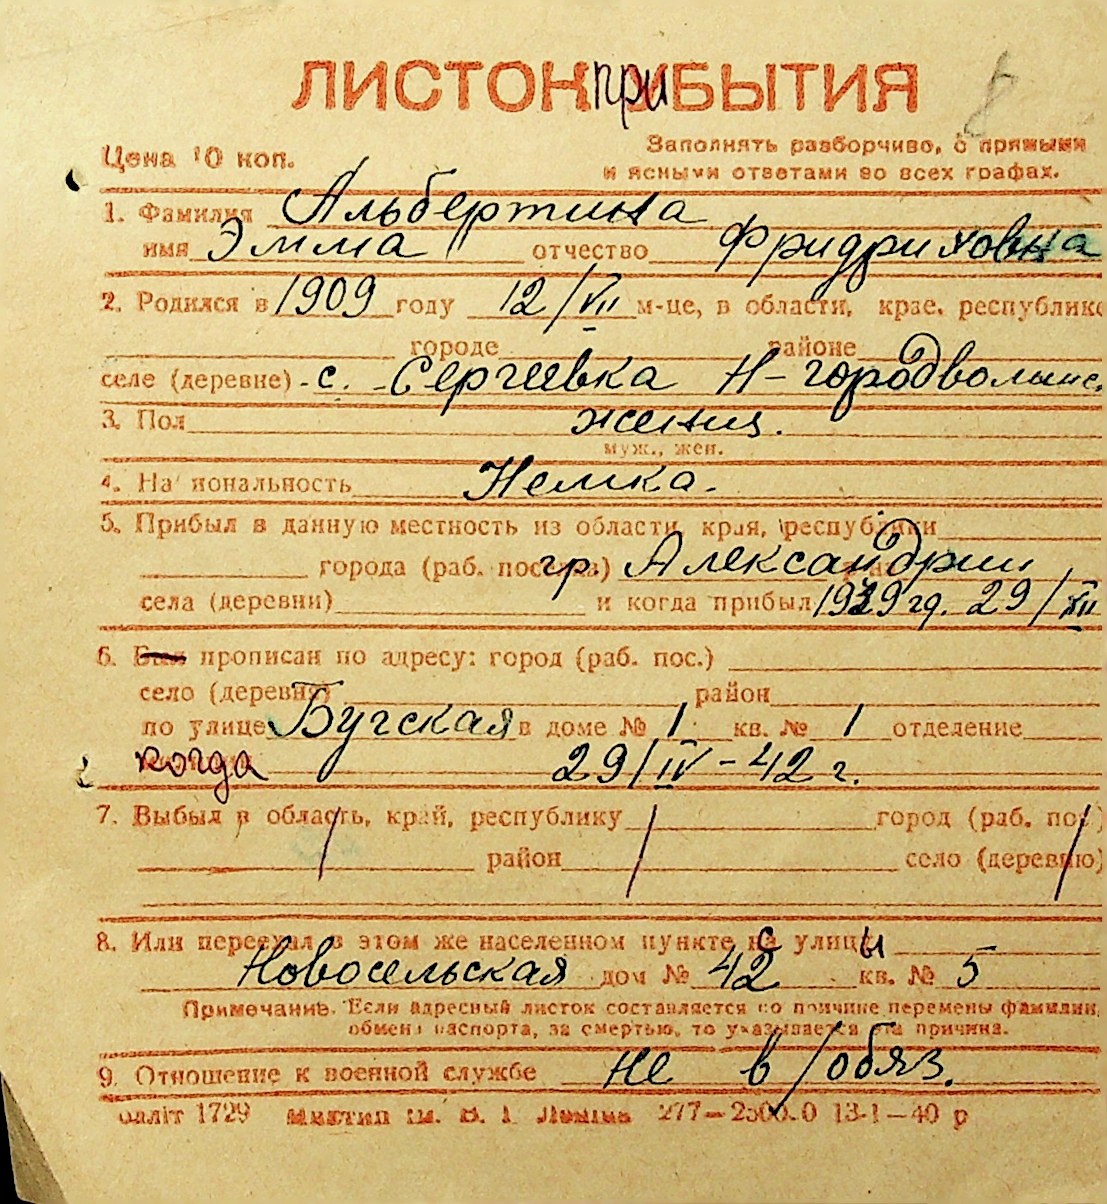 ЛИСТОК при БЫТИЯ
8
Цена 10 коп.
Заполнять разборчиво, с прямыми
и ясными ответами во всех графах.
1. Фамилия Альбертина
имя Эмма отчество Фридриховна
2. Родился в 1909 году 12/VII м-це, в области, крае, республике
городе районе
селе (деревне) - с. Сергеевка Н-городволынс.
3. Пол женщ.
муж., жен.
4. Национальность Немка.
5. Прибыл в данную местность из области, края, республики
города (раб. поселка) гр. Александрии
села (деревни) и когда прибыл 1939 гд. 29/XII
6. Был прописан по адресу: город (раб. пос.)
село (деревня) район
по улице Бугская в доме № 1 кв. № 1 отделение
когда 29/IV-42 г.
7. Выбыл в область, край, республику город (раб. пос)
район село (деревню)
8. Или переехал в этом же населенном пункте с улицы
Новосельская дом № 42 кв. № 5
Примечание. Если адресный листок составляется по причине перемены фамилии,
обмена паспорта, за смертью, то указывается эта причина.
9. Отношение к военной службе не в/обяз.
1729 277—2500.0 13-1—40 р